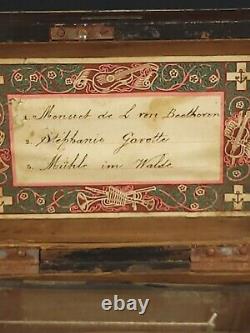 1. Menuet de L von Beethoven
2. Stéphanie Gavotte
3. Mühle im Walde